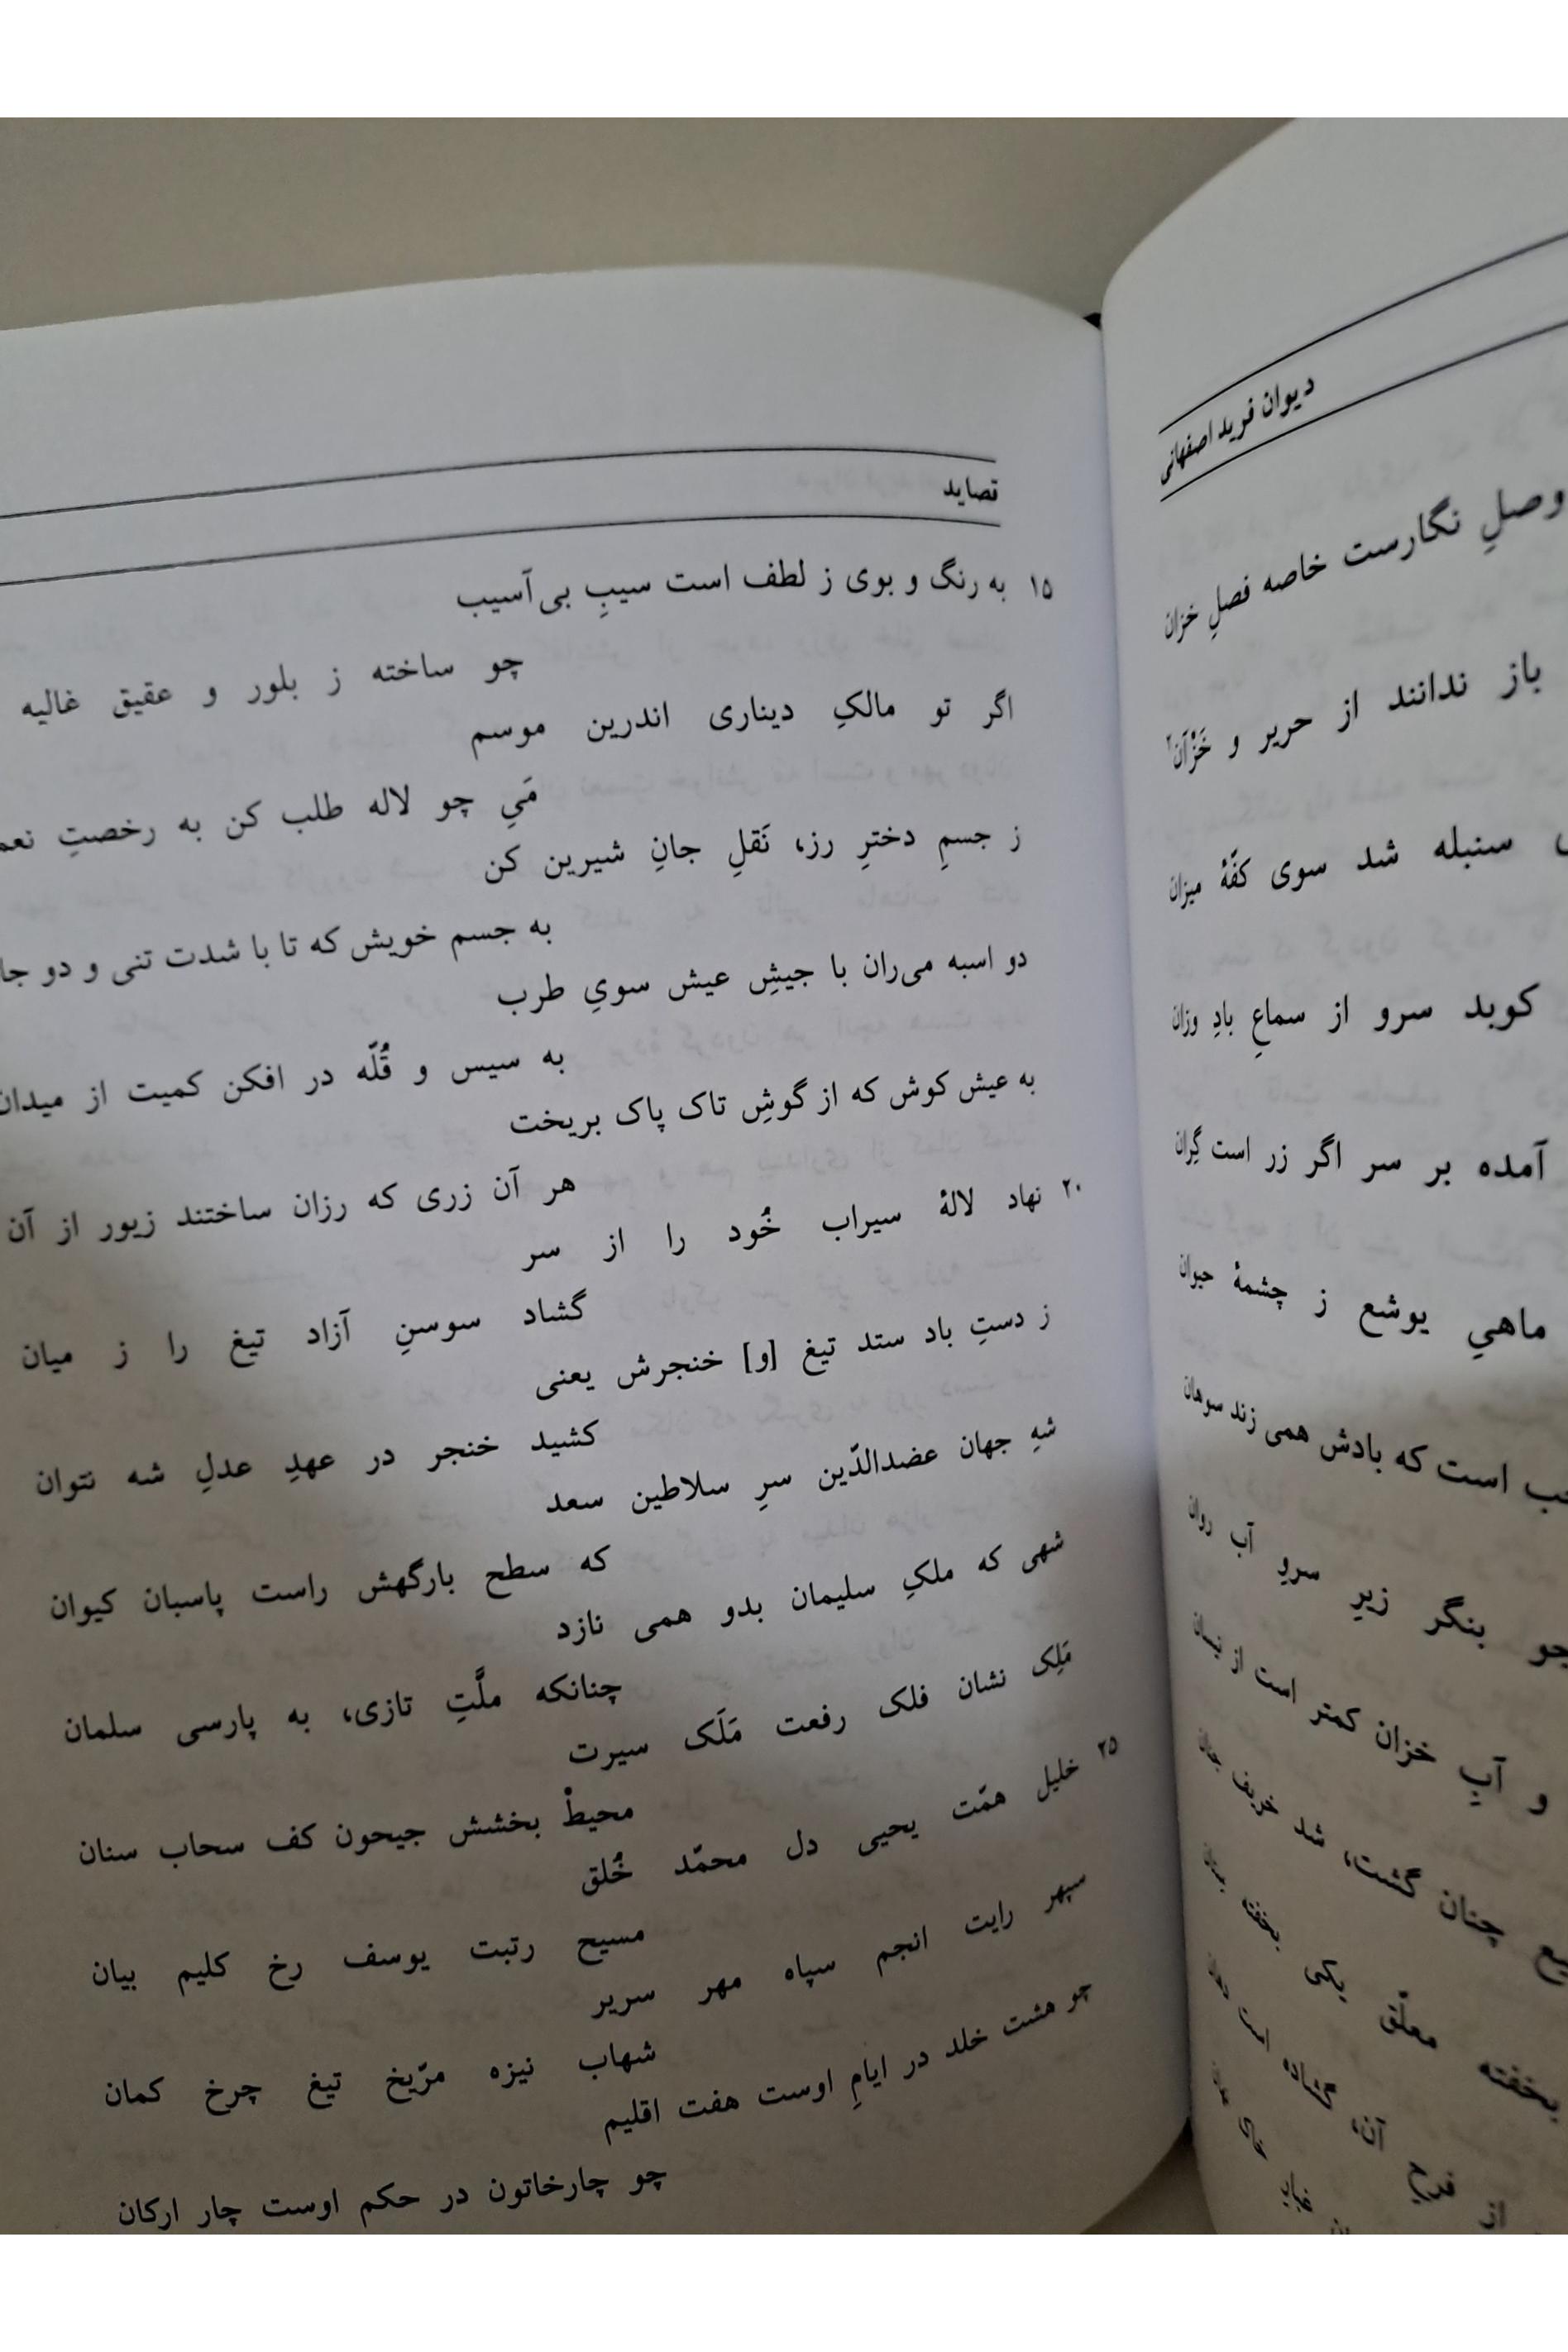 دیوان فرید اصفهانی
وصلِ نگارست خاصه فصلِ خزان
باز ندانند از حریر و خَزْ آن۲
سنبله شد سوی کفّهٔ میزان
کوبد سرو از سماعِ بادِ وزان
آمده بر سر اگر زر است گِران
ماهیِ یوشع ز چشمهٔ حیوان
است که بادش همی زند سوهان
بنگر زیرِ سروِ آب روان
و آبِ خزان کمتر است از نیسان
چنان گشت، شد خریف چنان
بخفته معلّق یکی بخفته
فرحِ آن، گشاده است
از
قصاید
۱۵ به رنگ و بوی ز لطف است سیبِ بی‌آسیب
چو ساخته ز بلور و عقیق غالیه
اگر تو مالکِ دیناری اندرین موسم
مَیِ چو لاله طلب کن به رخصتِ
ز جسمِ دخترِ رز، نَقلِ جانِ شیرین کن
به جسم خویش که تا با شدت تنی و دو
دو اسبه می‌ران با جیشِ عیش سویِ طرب
به سیس و قُلّه در افکن کمیت از میدان
به عیش کوش که از گوشِ تاک پاک بریخت
هر آن زری که رزان ساختند زیور از آن
۲۰ نهاد لالهٔ سیراب خُود را از سر
گشاد سوسنِ آزاد تیغ را ز میان
ز دستِ باد ستد تیغ [و] خنجرش یعنی
کشید خنجر در عهدِ عدلِ شه نتوان
شهِ جهان عضدالدّین سرِ سلاطین سعد
که سطح بارگهش راست پاسبان کیوان
شهی که ملکِ سلیمان بدو همی نازد
چنانکه ملَّتِ تازی، به پارسی سلمان
مَلِک نشان فلک رفعت مَلَک سیرت
محیطْ بخشش جیحون کف سحاب سنان
۲۵ خلیل همّت یحیی دل محمّد خُلق
مسیح رتبت یوسف رخ کلیم بیان
سپهر رایت انجم سپاه مهر سریر
شهاب نیزه مرّیخ تیغ چرخ کمان
چو هشت خلد در ایامِ اوست هفت اقلیم
چو چارخاتون در حکم اوست چار ارکان